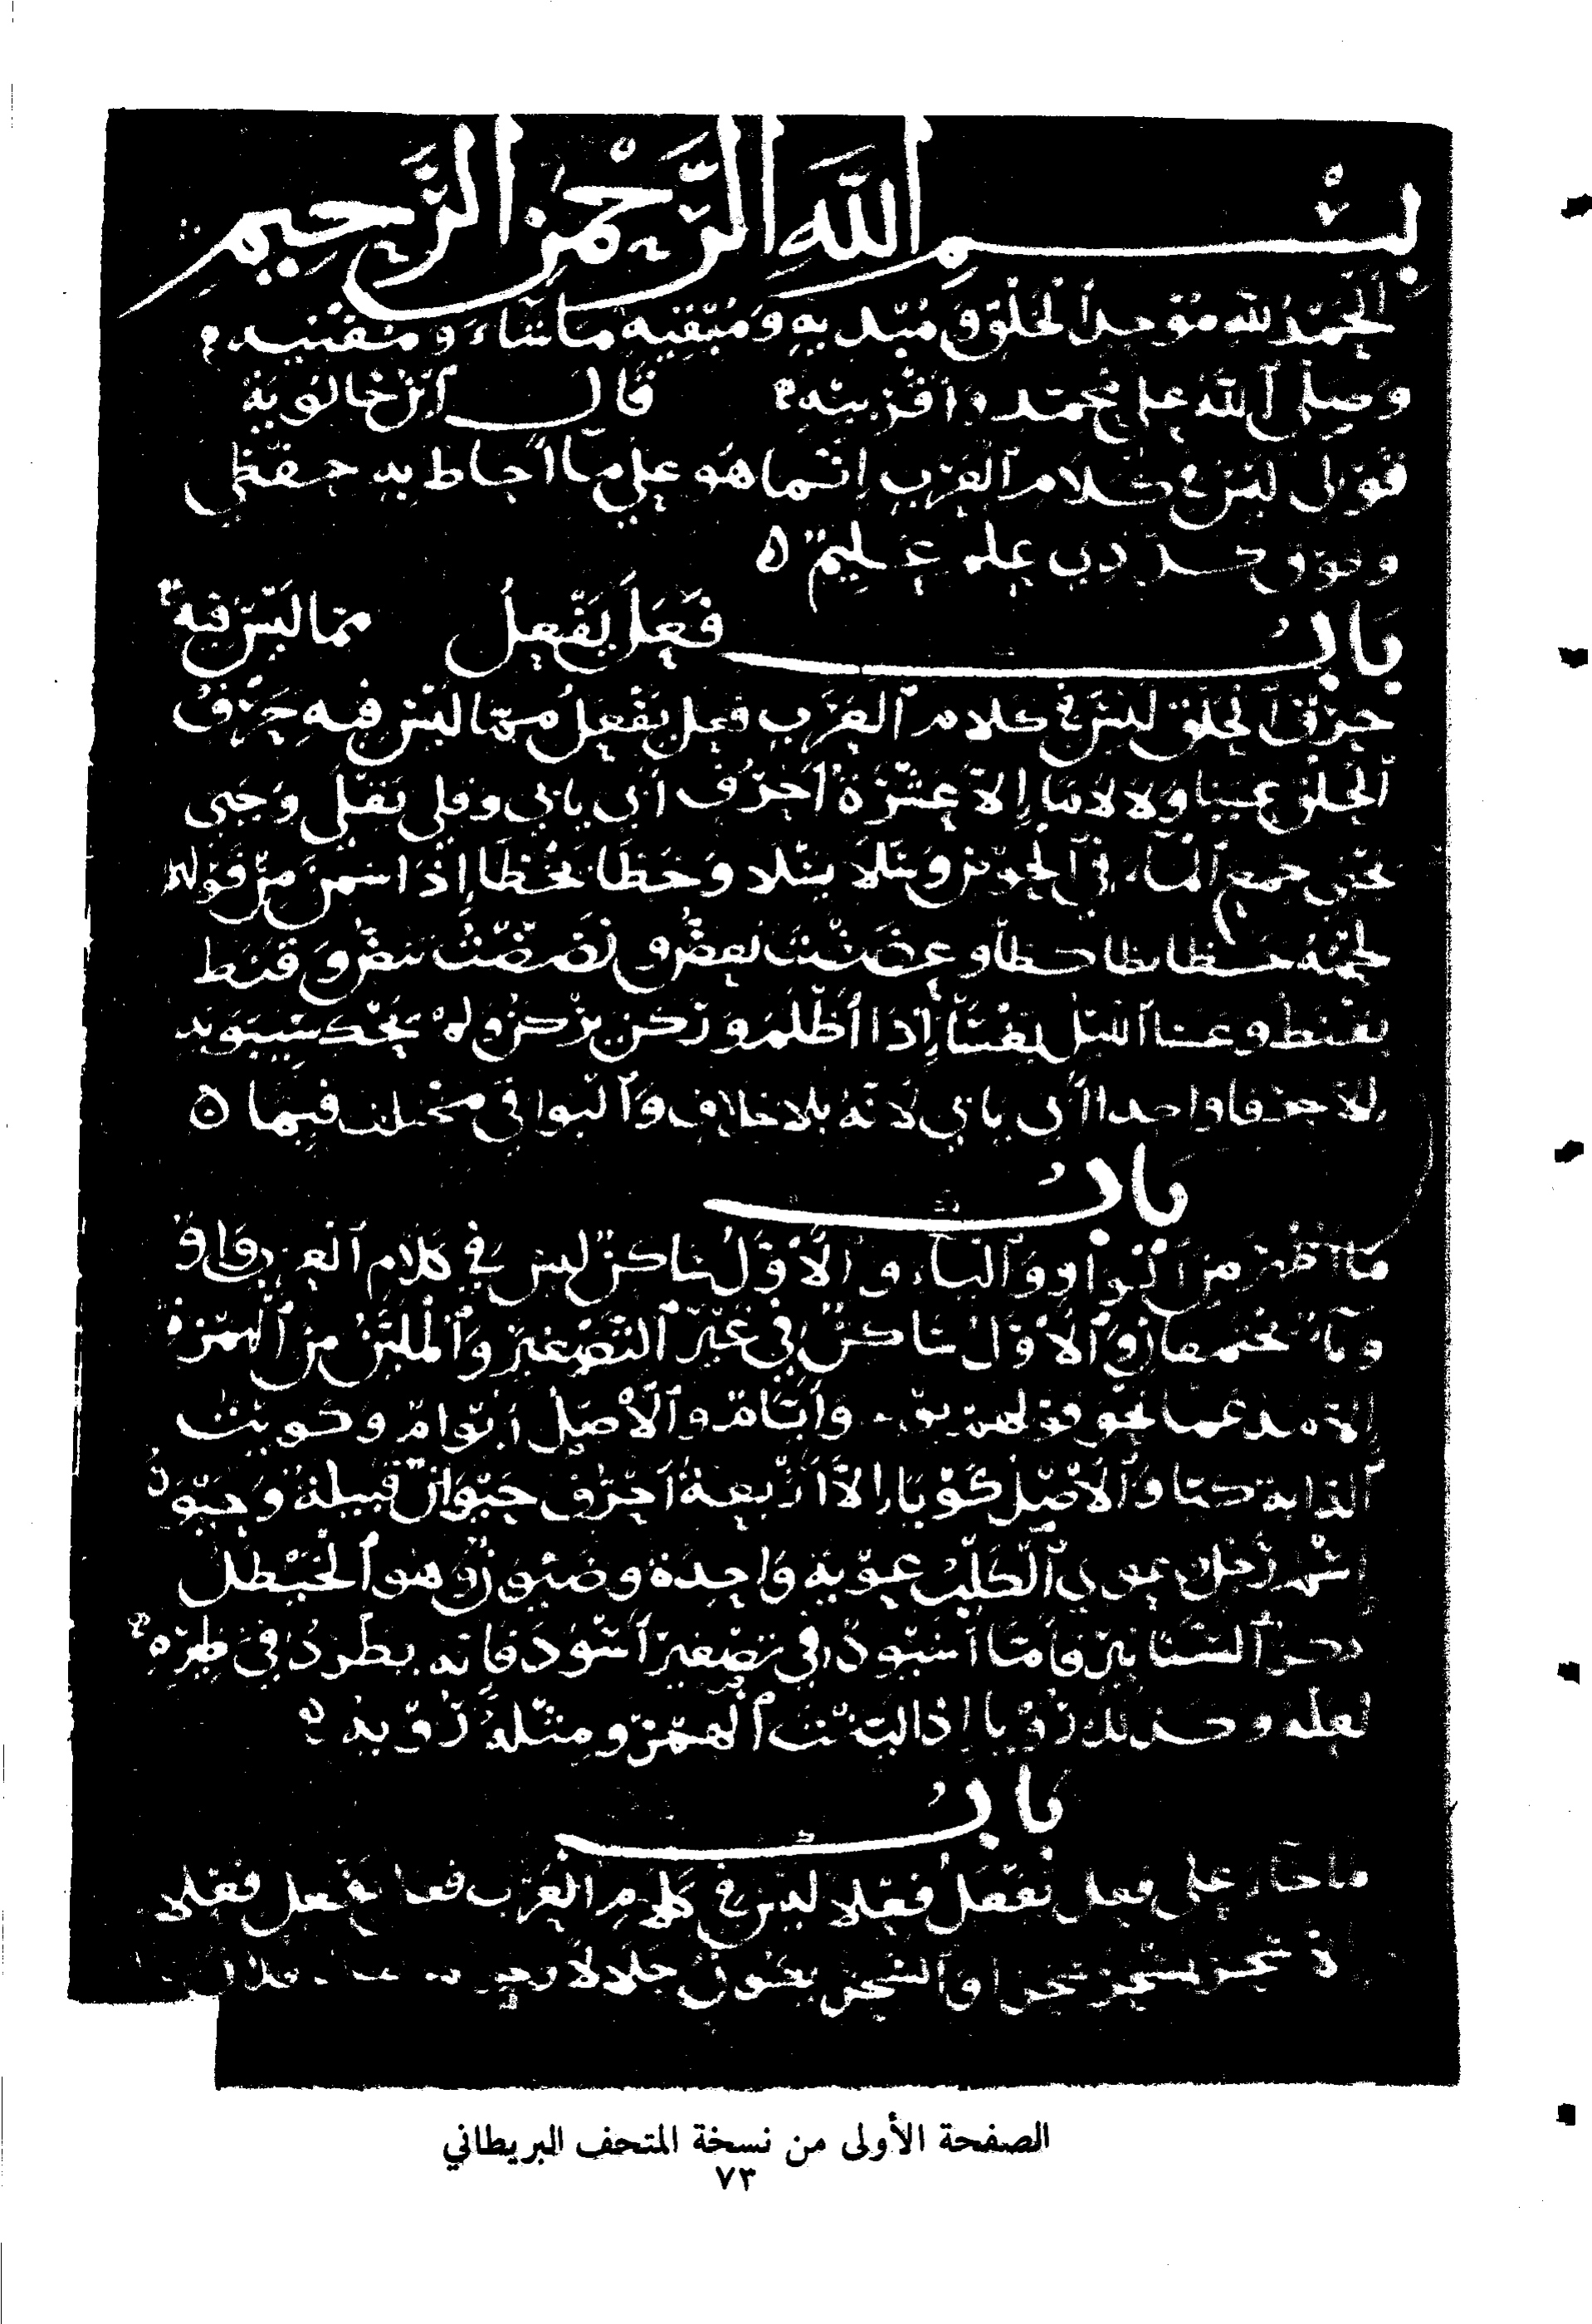 بسم الله الرحمن الرحيم
الحمد لله موحد الخلق ومبديه ومبقيه ما شاء ومفنيه
وصلى الله على محمد وأقربيه قال ابن خالويه
قولي ليس في كلام العرب إنما هو على ما أحاط به حفظي
وفوق كل ذي علم عليم
باب فعل يفعل مما ليس فيه
حرف الحلق ليس في كلام العرب فعل يفعل مما ليس فيه حرف
الحلق عينا ولا لاما إلا عشرة أحرف أبى يأبى وقلى يقلى وجبى
يجبى جمع الماء في الحوض وسلا يسلا وخظا يخظا إذا سمن من قولهم
لحمه خظا بظا كظا وعضضت تعض وبضضت تبض وقنط
يقنط وغسا الليل يغسا إذا أظلم وركن يركن ولم يحك سيبويه
إلا حرفا واحدا أبى يأبى لأنه بلا خلاف والبواقي مختلف فيها
باب
ما أظهر من الواو والياء والأول ساكن ليس في كلام العرب واو
وياء تجتمعان والأول ساكن في غير التصغير والملين من الهمز
إلا مدغما نحو قولهم وأيام والأصل أيوام وكويت
الدابة كيا والأصل كويا إلا أربعة أحرف حيوان قبيلة وحيوة
اسم رجل وعوى الكلب عوية واحدة وضيون وهو الخيطل
ذكر السنانير فأما أسيود في تصغير أسود فإنه يطرد في
وكذلك رويا إذا لينت الهمز ومثله روية
باب
ما جاء على فعل يفعل فعلا ليس في كلام العرب فعل يفعل فعلا
سحر يسحر سحرا
الصفحة الأولى من نسخة المتحف البريطاني
٧٣